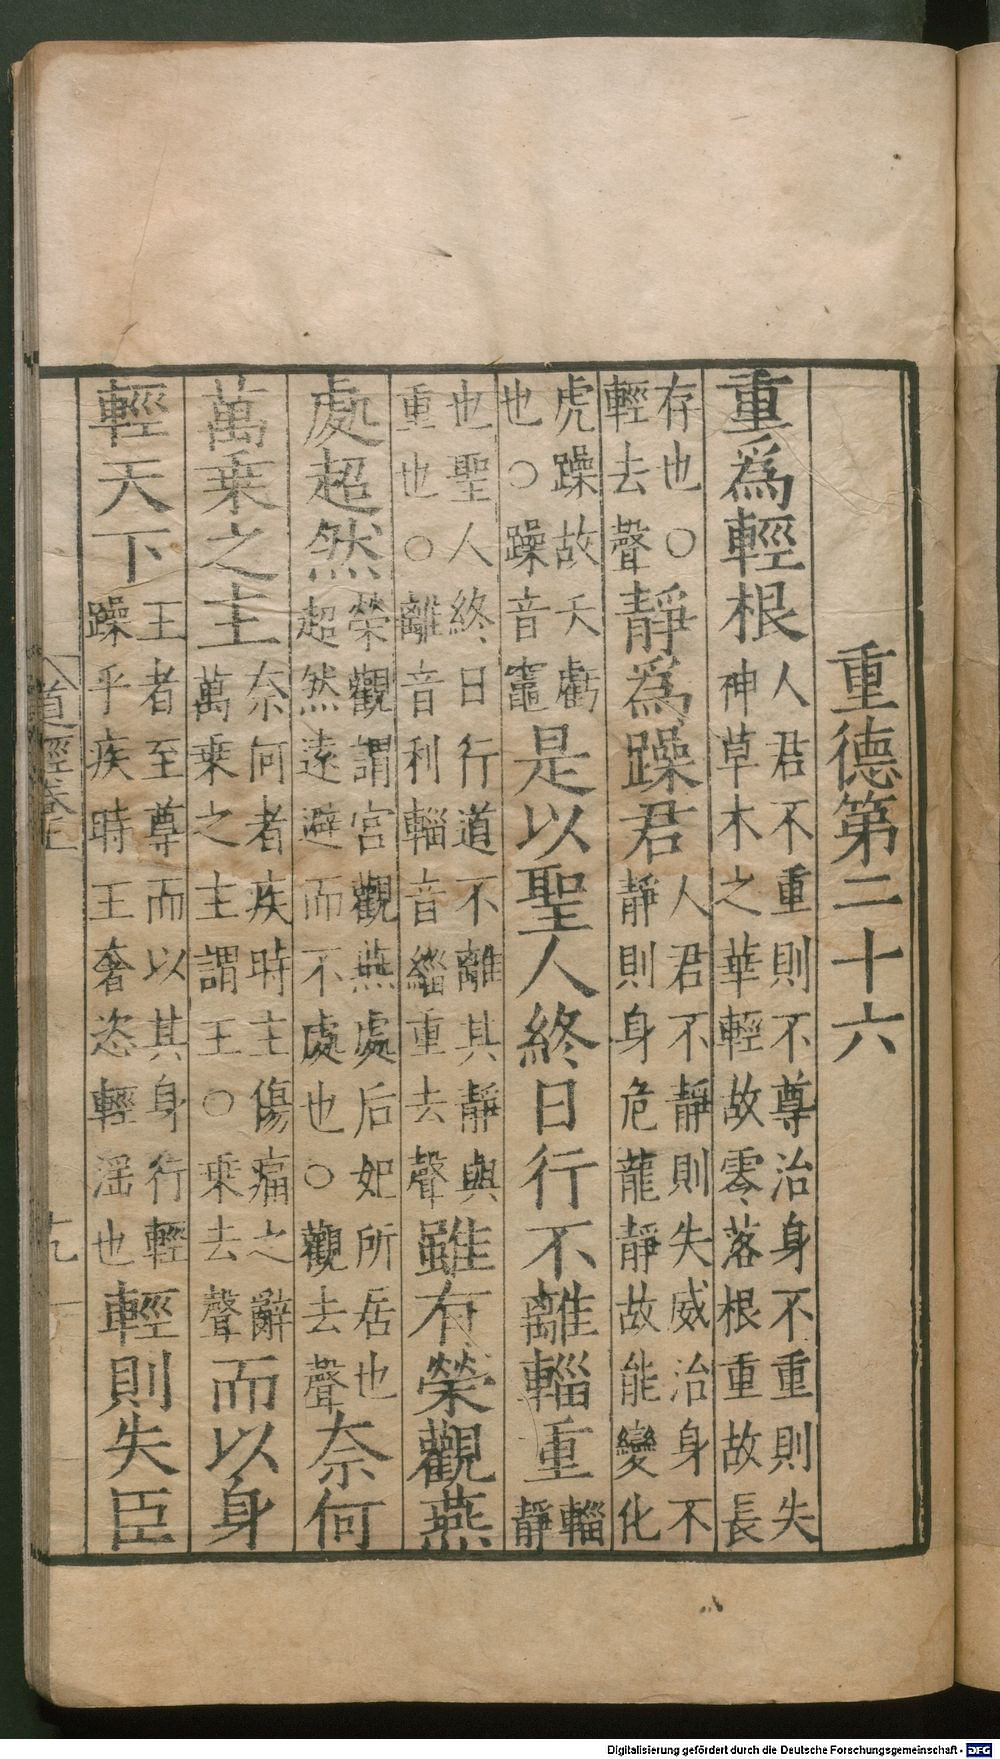 重德第二十六
重爲輕根人君不重則不尊治身不重則失神草木之華輕故零落根重故長
存也○輕去聲靜爲躁君人君不靜則失威治身不靜則身危龍靜故能變化
虎躁故夭虧也○躁音竈是以聖人終日行不離輜重輜靜
也聖人終日行道不離其靜與重也○離音利輜音緇重去聲雖有榮觀燕
處超然榮觀謂宮觀燕處后妃所居也超然遠避而不處也○觀去聲奈何
萬乗之主奈何者疾時主傷痛之辭萬乗之主謂王○乗去聲而以身
輕天下王者至尊而以其身行輕躁乎疾時王奢恣輕滛也輕則失臣
道經卷上
十九
Digitalisierung gefördert durch die Deutsche Forschungsgemeinschaft - DFG